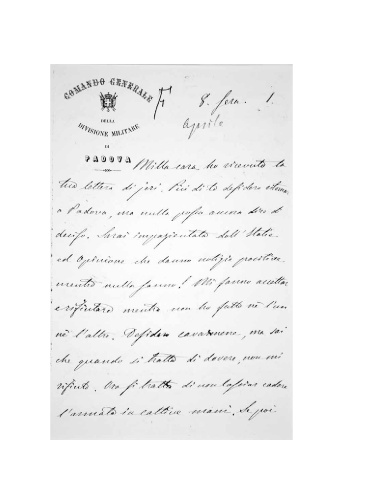 COMANDO GENERALE
DELLA
DIVISIONE MILITARE
DI
PADOVA
8. sera. 1.
Aprile
Milla cara, ho ricevuto la
tua lettera di jeri. Più di te desidero
a Padova, ma nulla posso ancora dire di
deciso. Sarai impazientata dall'Italie
ed Opinione che danno notizie positive
mentre nulla sanno! Mi fanno accettare
e rifiutare mentre non ho fatto nè l'uno
nè l'altro. Desidero cavarmene, ma sai
che quando si tratta di dovere, non mi
rifiuto. Ora si tratta di non lasciar cadere
l'armata in cattive mani. Se poi